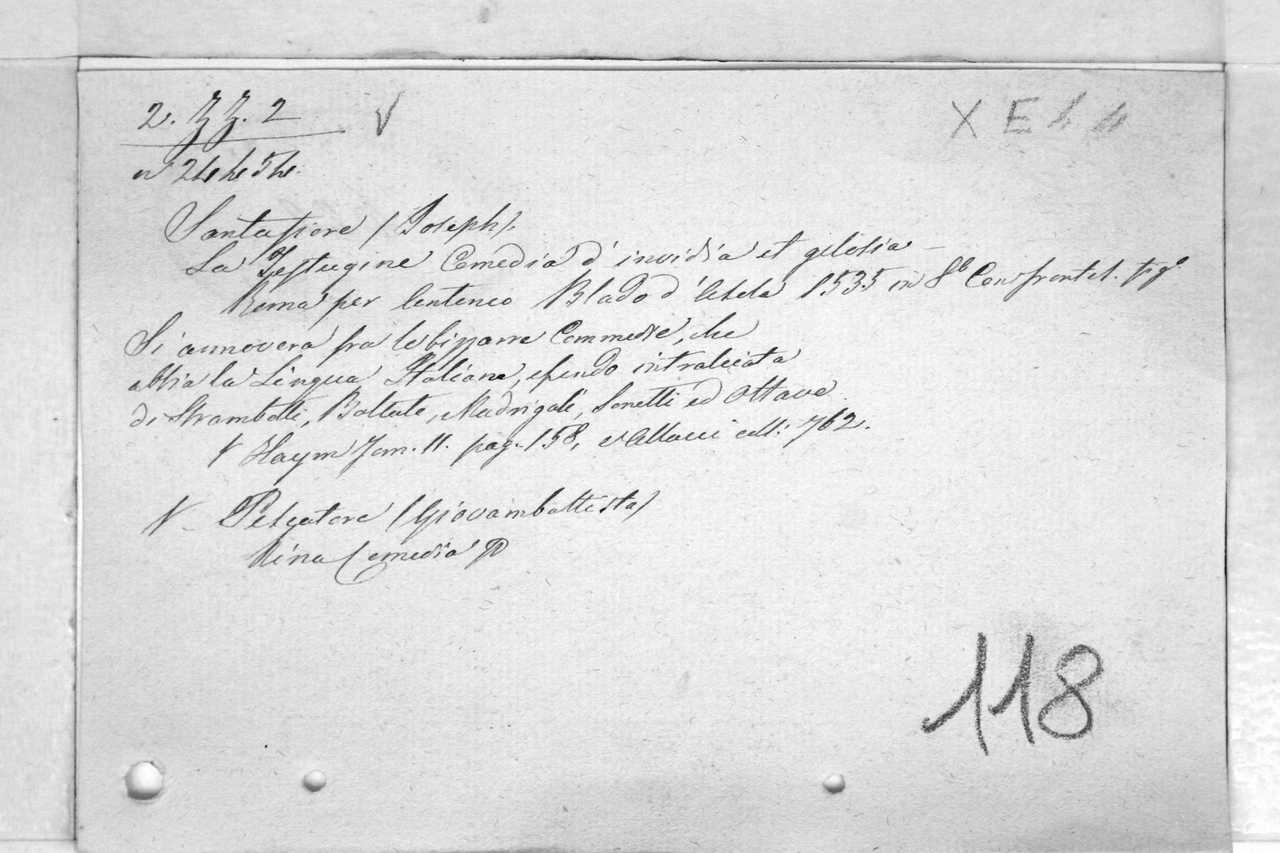 2. ZZ. 2 V
X E
Santafiore (Joseph).
La Testugine Comedia d'invidia et gelosia
Roma per Blado d'Asola 1535 in 8º Con frontet. figº
Si annovera fra le bizzarre Commedie, che
abbia la Lingua Italiana, essendo intralciata
di Strambotti, Ballate, Madrigali, Sonetti ed Ottave.
V Haym Tom. II. pag. 158, et Allacci coll: 762.
V Pescatore (Giovambattista)
Nina Comedia
118